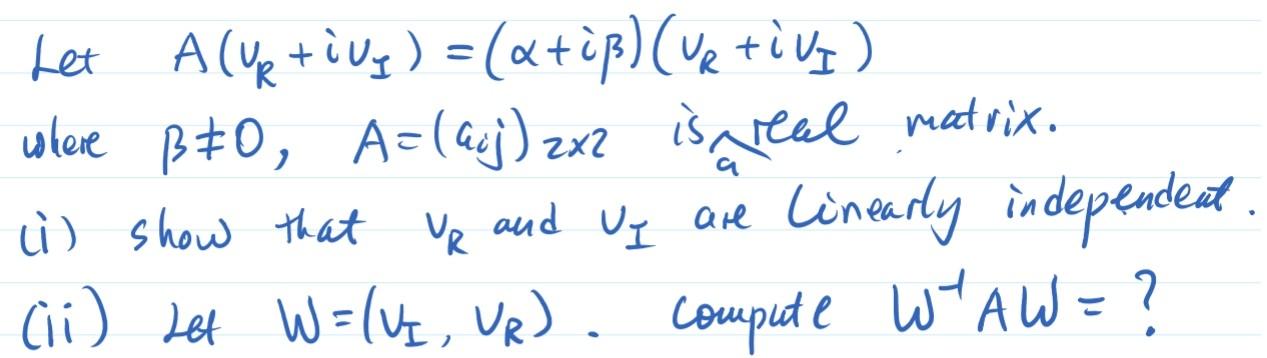 Let A(v_R + i v_I) = (α + iβ)(v_R + i v_I)
where β ≠ 0, A = (a_ij)_2x2 is a real matrix.
(i) show that v_R and v_I are linearly independent.
(ii) Let W = (v_I, v_R). Compute W^-1 A W = ?